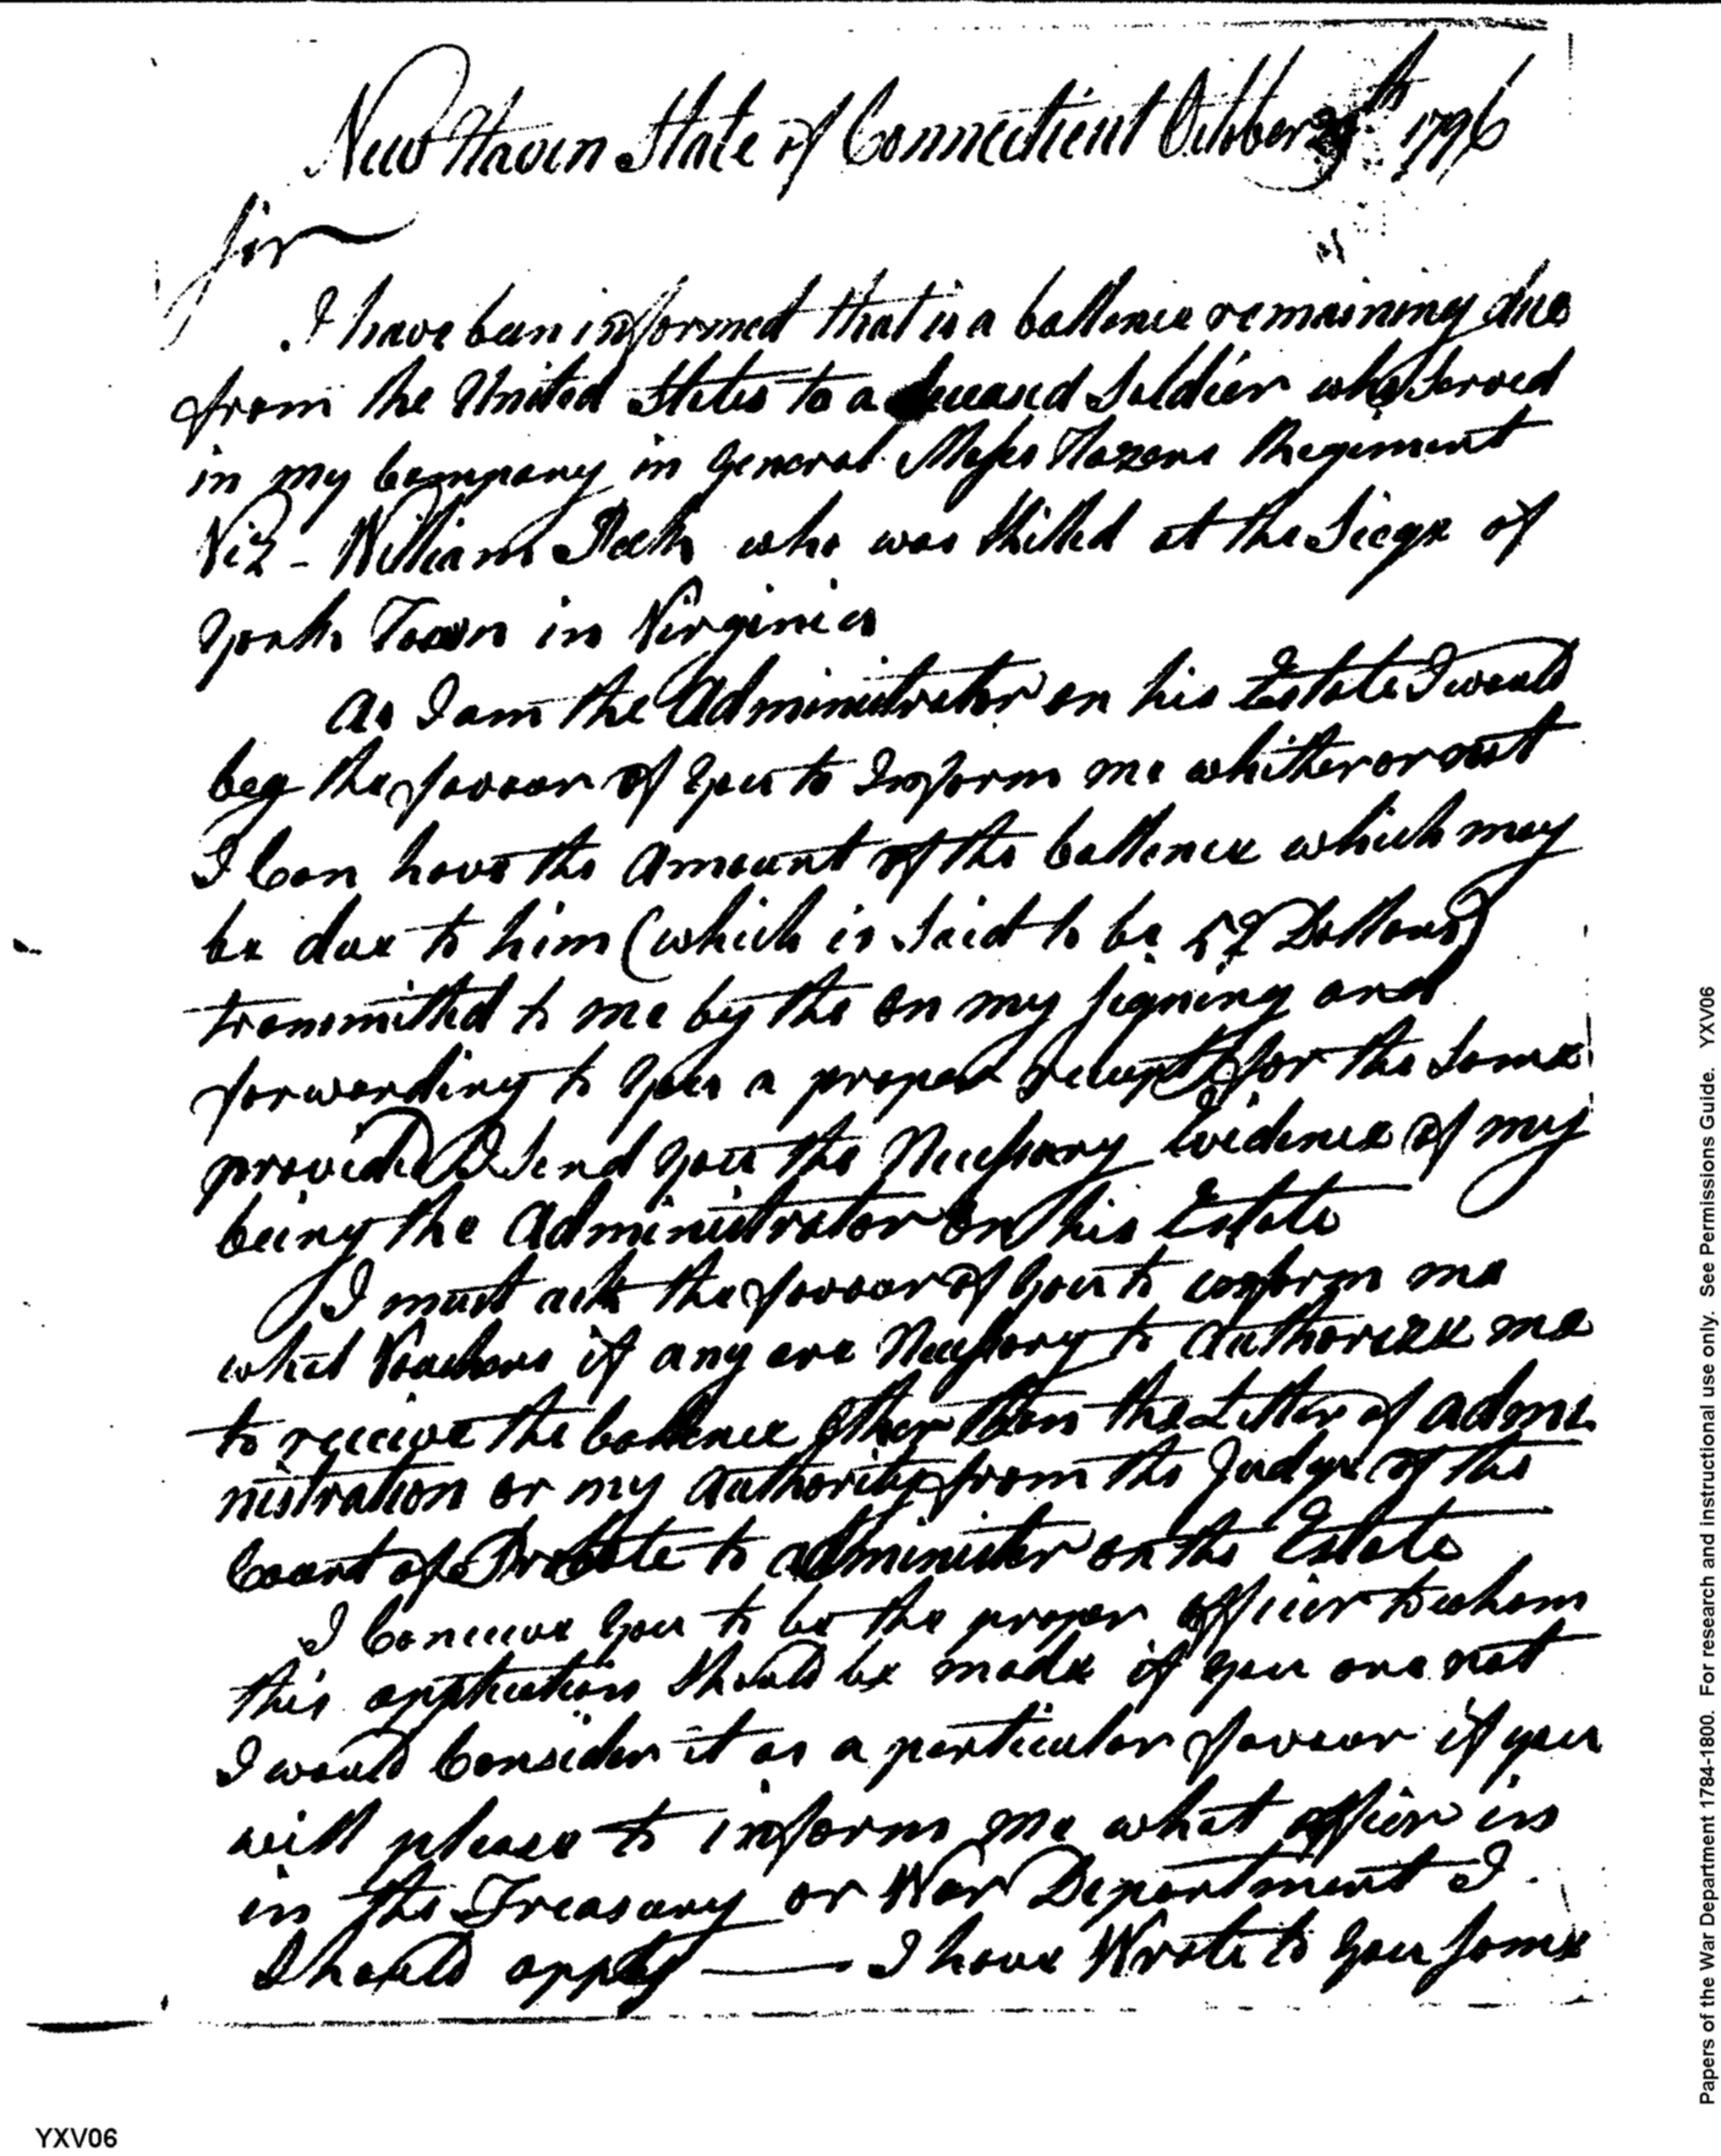 New Haven State of Connecticut October th 1796
Sir
I have been informed that is a ballence remaining due
from the United States to a deceased Soldier who Served
in my Company in General Moses Hazens Regiment
Viz - William Peck who was Killed at the Siege of
York Town in Virginia
As I am the Administrator on his Estate I would
beg the favour of you to Inform me whither or not
I Can have the Amount of the ballence which may
be due to him (which is Said to be Dollars)
transmitted to me by the on my signing and
forwarding to you a proper receipt for the Same
provided I Send you the Necessary Evidence of my
being the Administrator on his Estate
I must ask the favour of you to inform me
what Vouchers if any are Necessary to authorize me
to receive the ballence other than the Letter of admi
nistration or my authority from the Judge of the
Court of Probate to administer on the Estate
I Conceive you to be the proper officer to whom
this application Should be made if you are not
I would Consider it as a particular favour if you
will please to inform me what officer is
in the Treasury or War Department I
Should apply — I have Wrote to you some
YXV06
Papers of the War Department 1784-1800. For research and instructional use only. See Permissions Guide. YXV06